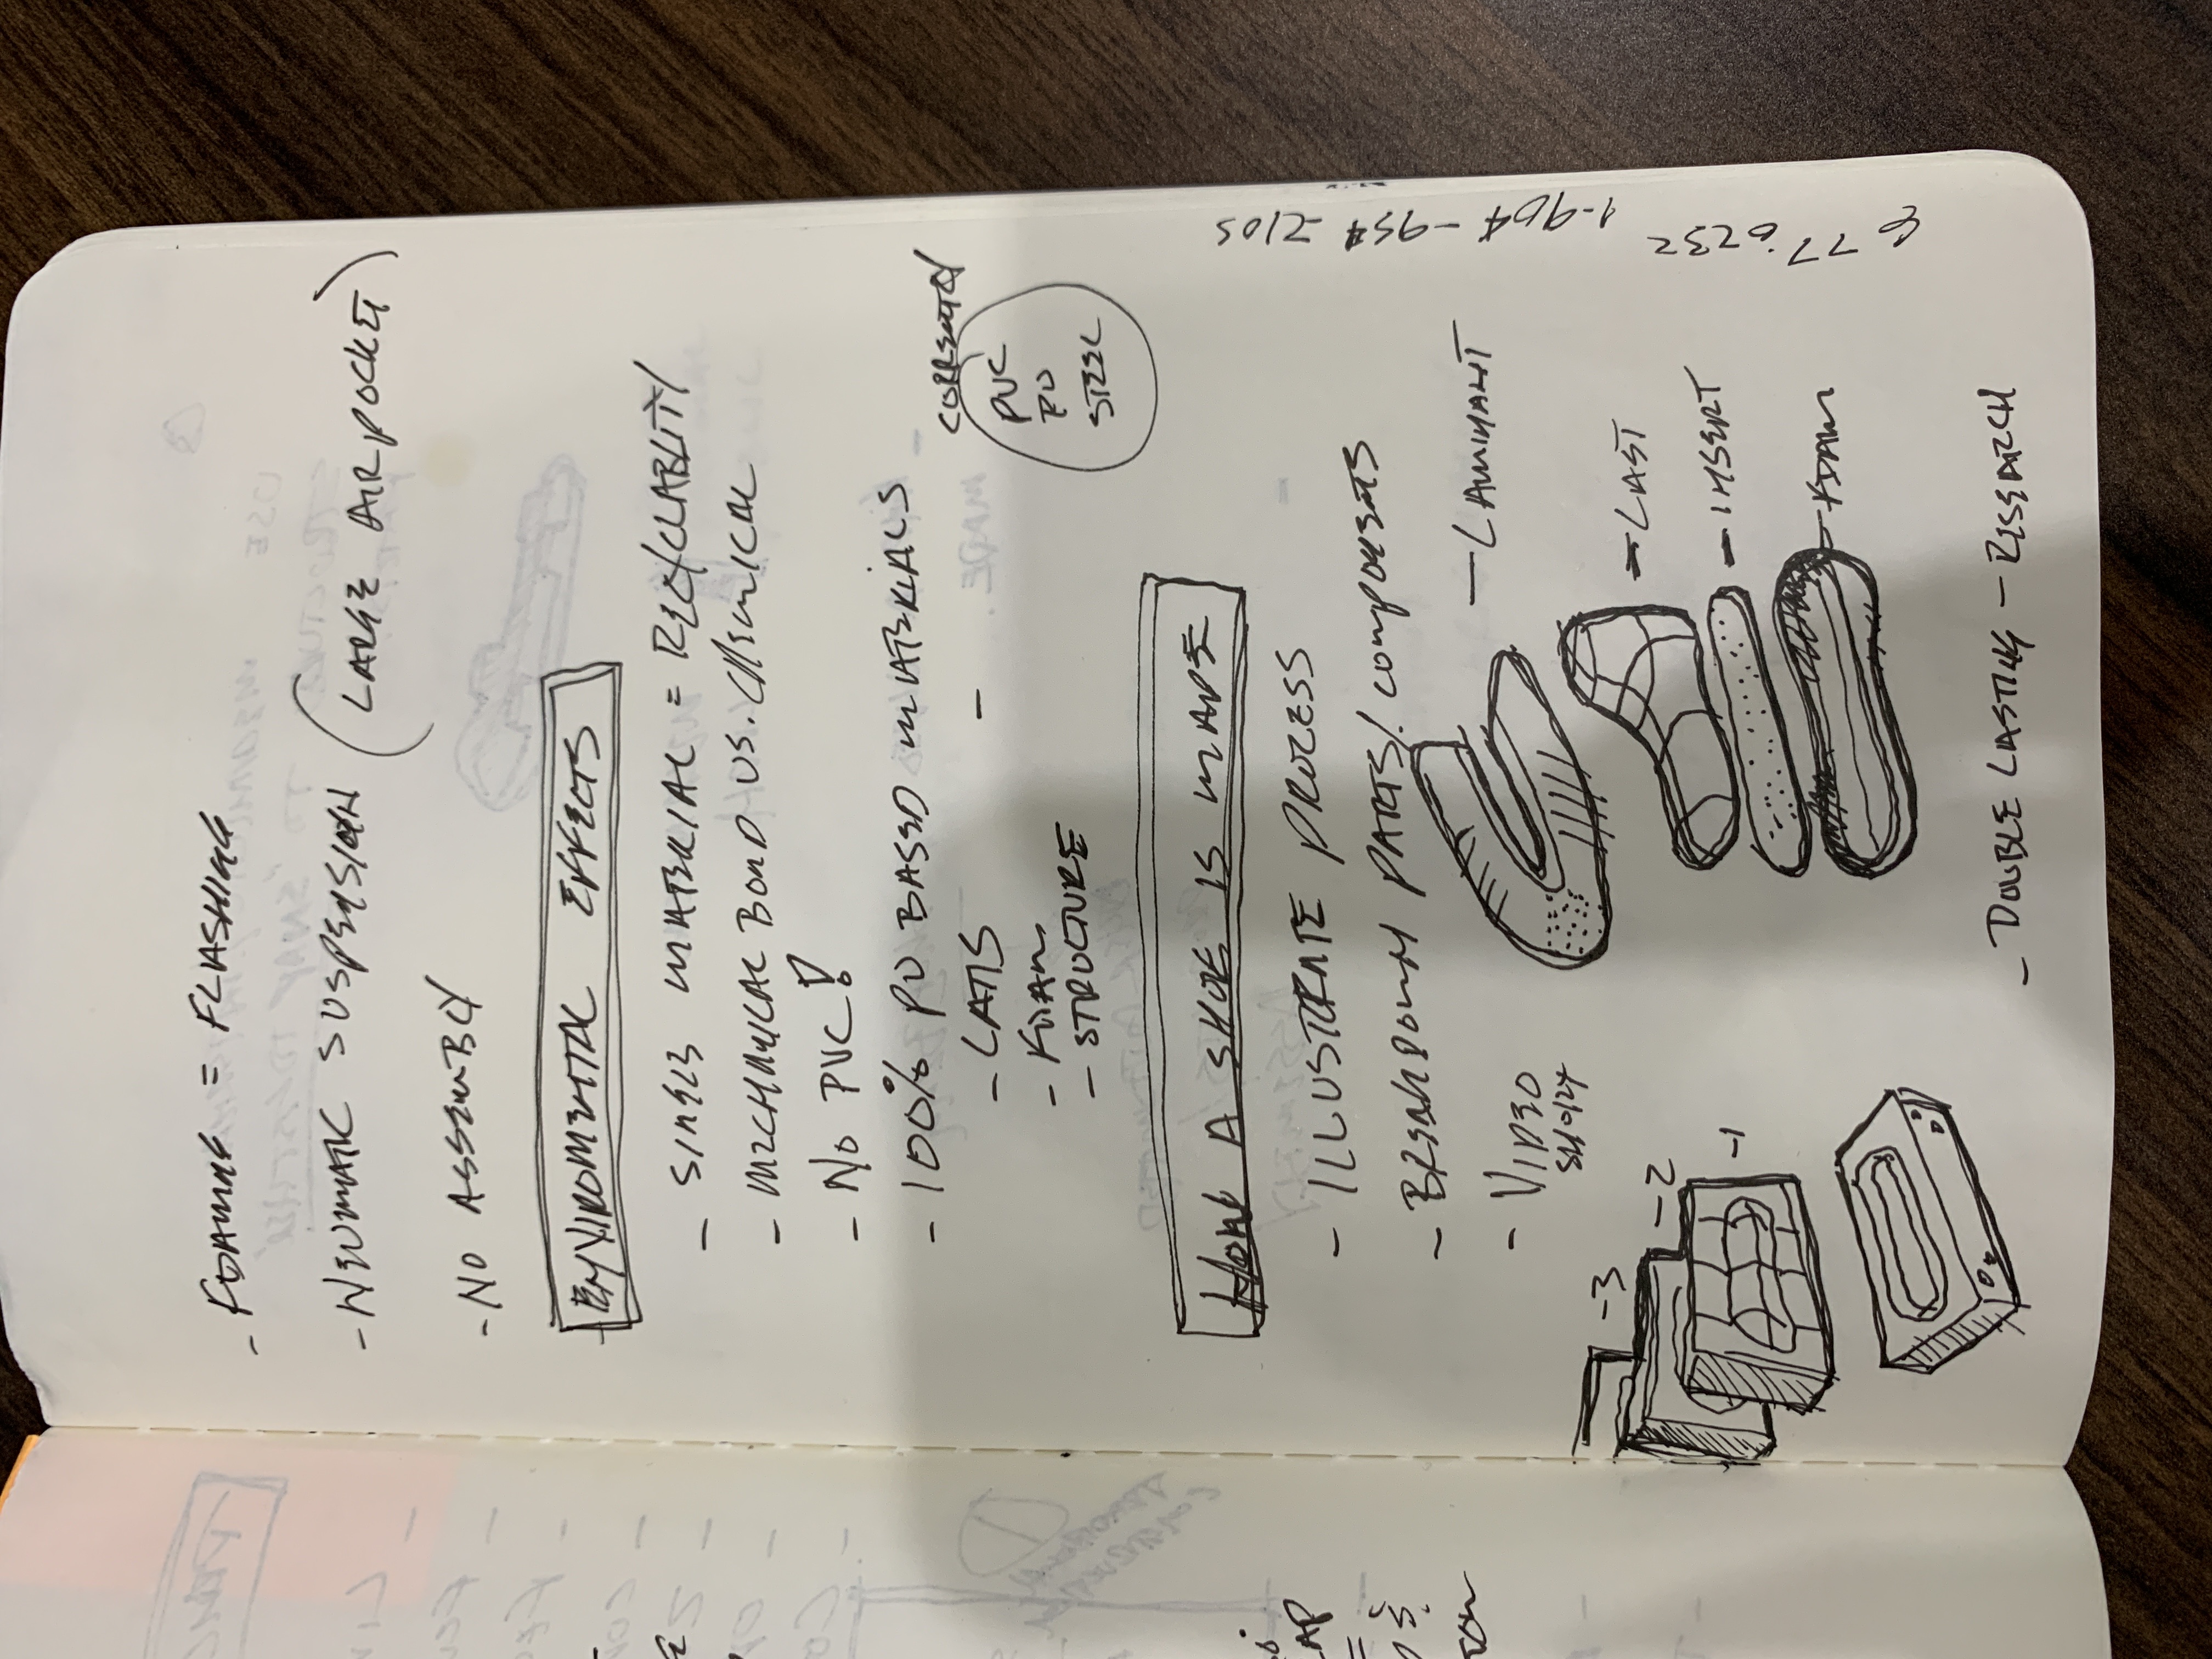 - FOAMING = FLASHING
- NEUMATIC SUSPENSION (LARGE AIR POCKET)
- NO ASSEMBLY
ENVIROMENTAL EFFECTS
- SINGLE MATERIAL = RECYCLABLITY
- MECHANICAL BOND VS. CHEMICAL
- NO PVC!
- 100% PU BASED MATERIALS -
- LATS -
- FOAM
- STRUCTURE
CURRENTLY
PVC
PU
STEEL
HOW A SHOE IS MADE
- ILLUSTRATE PROCESS
- BREAKDOWN PARTS/COMPONENTS
- VIDEO
- LAMINANT
- LAST
- INSERT
- FOAM
-3
-2
-1
- DOUBLE LASTING - RESEARCH